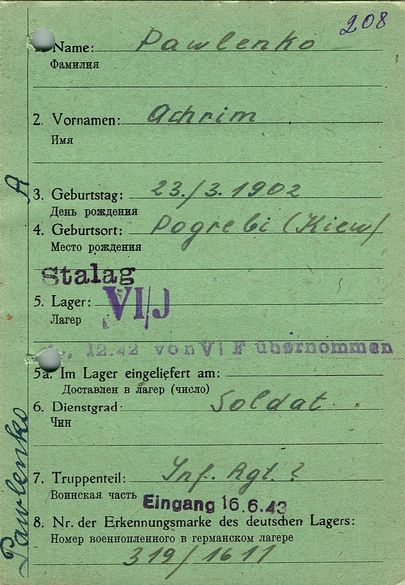 208
1. Name: Pawlenko
Фамилия
2. Vornamen: Achrim
Имя
3. Geburtstag: 23./3.1902
День рождения
4. Geburtsort: Pogrebi (Kiew)
Место рождения
Stalag
VI/J
5. Lager:
Лагер
12.42 von VI F übernommen
5a. Im Lager eingeliefert am:
Доставлен в лагер (число)
6. Dienstgrad: Soldat
Чин
7. Truppenteil: Inf. Rgt. ?
Воинская часть
Eingang 16.6.43
8. Nr. der Erkennungsmarke des deutschen Lagers:
Номер военнопленного в германском лагере
319/1611
Pawlenko A